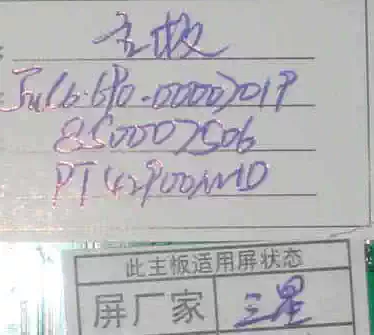 主板
JUC6.690.00007019
850007506
PT42900NHD
此主板适用屏状态
屏厂家 三星